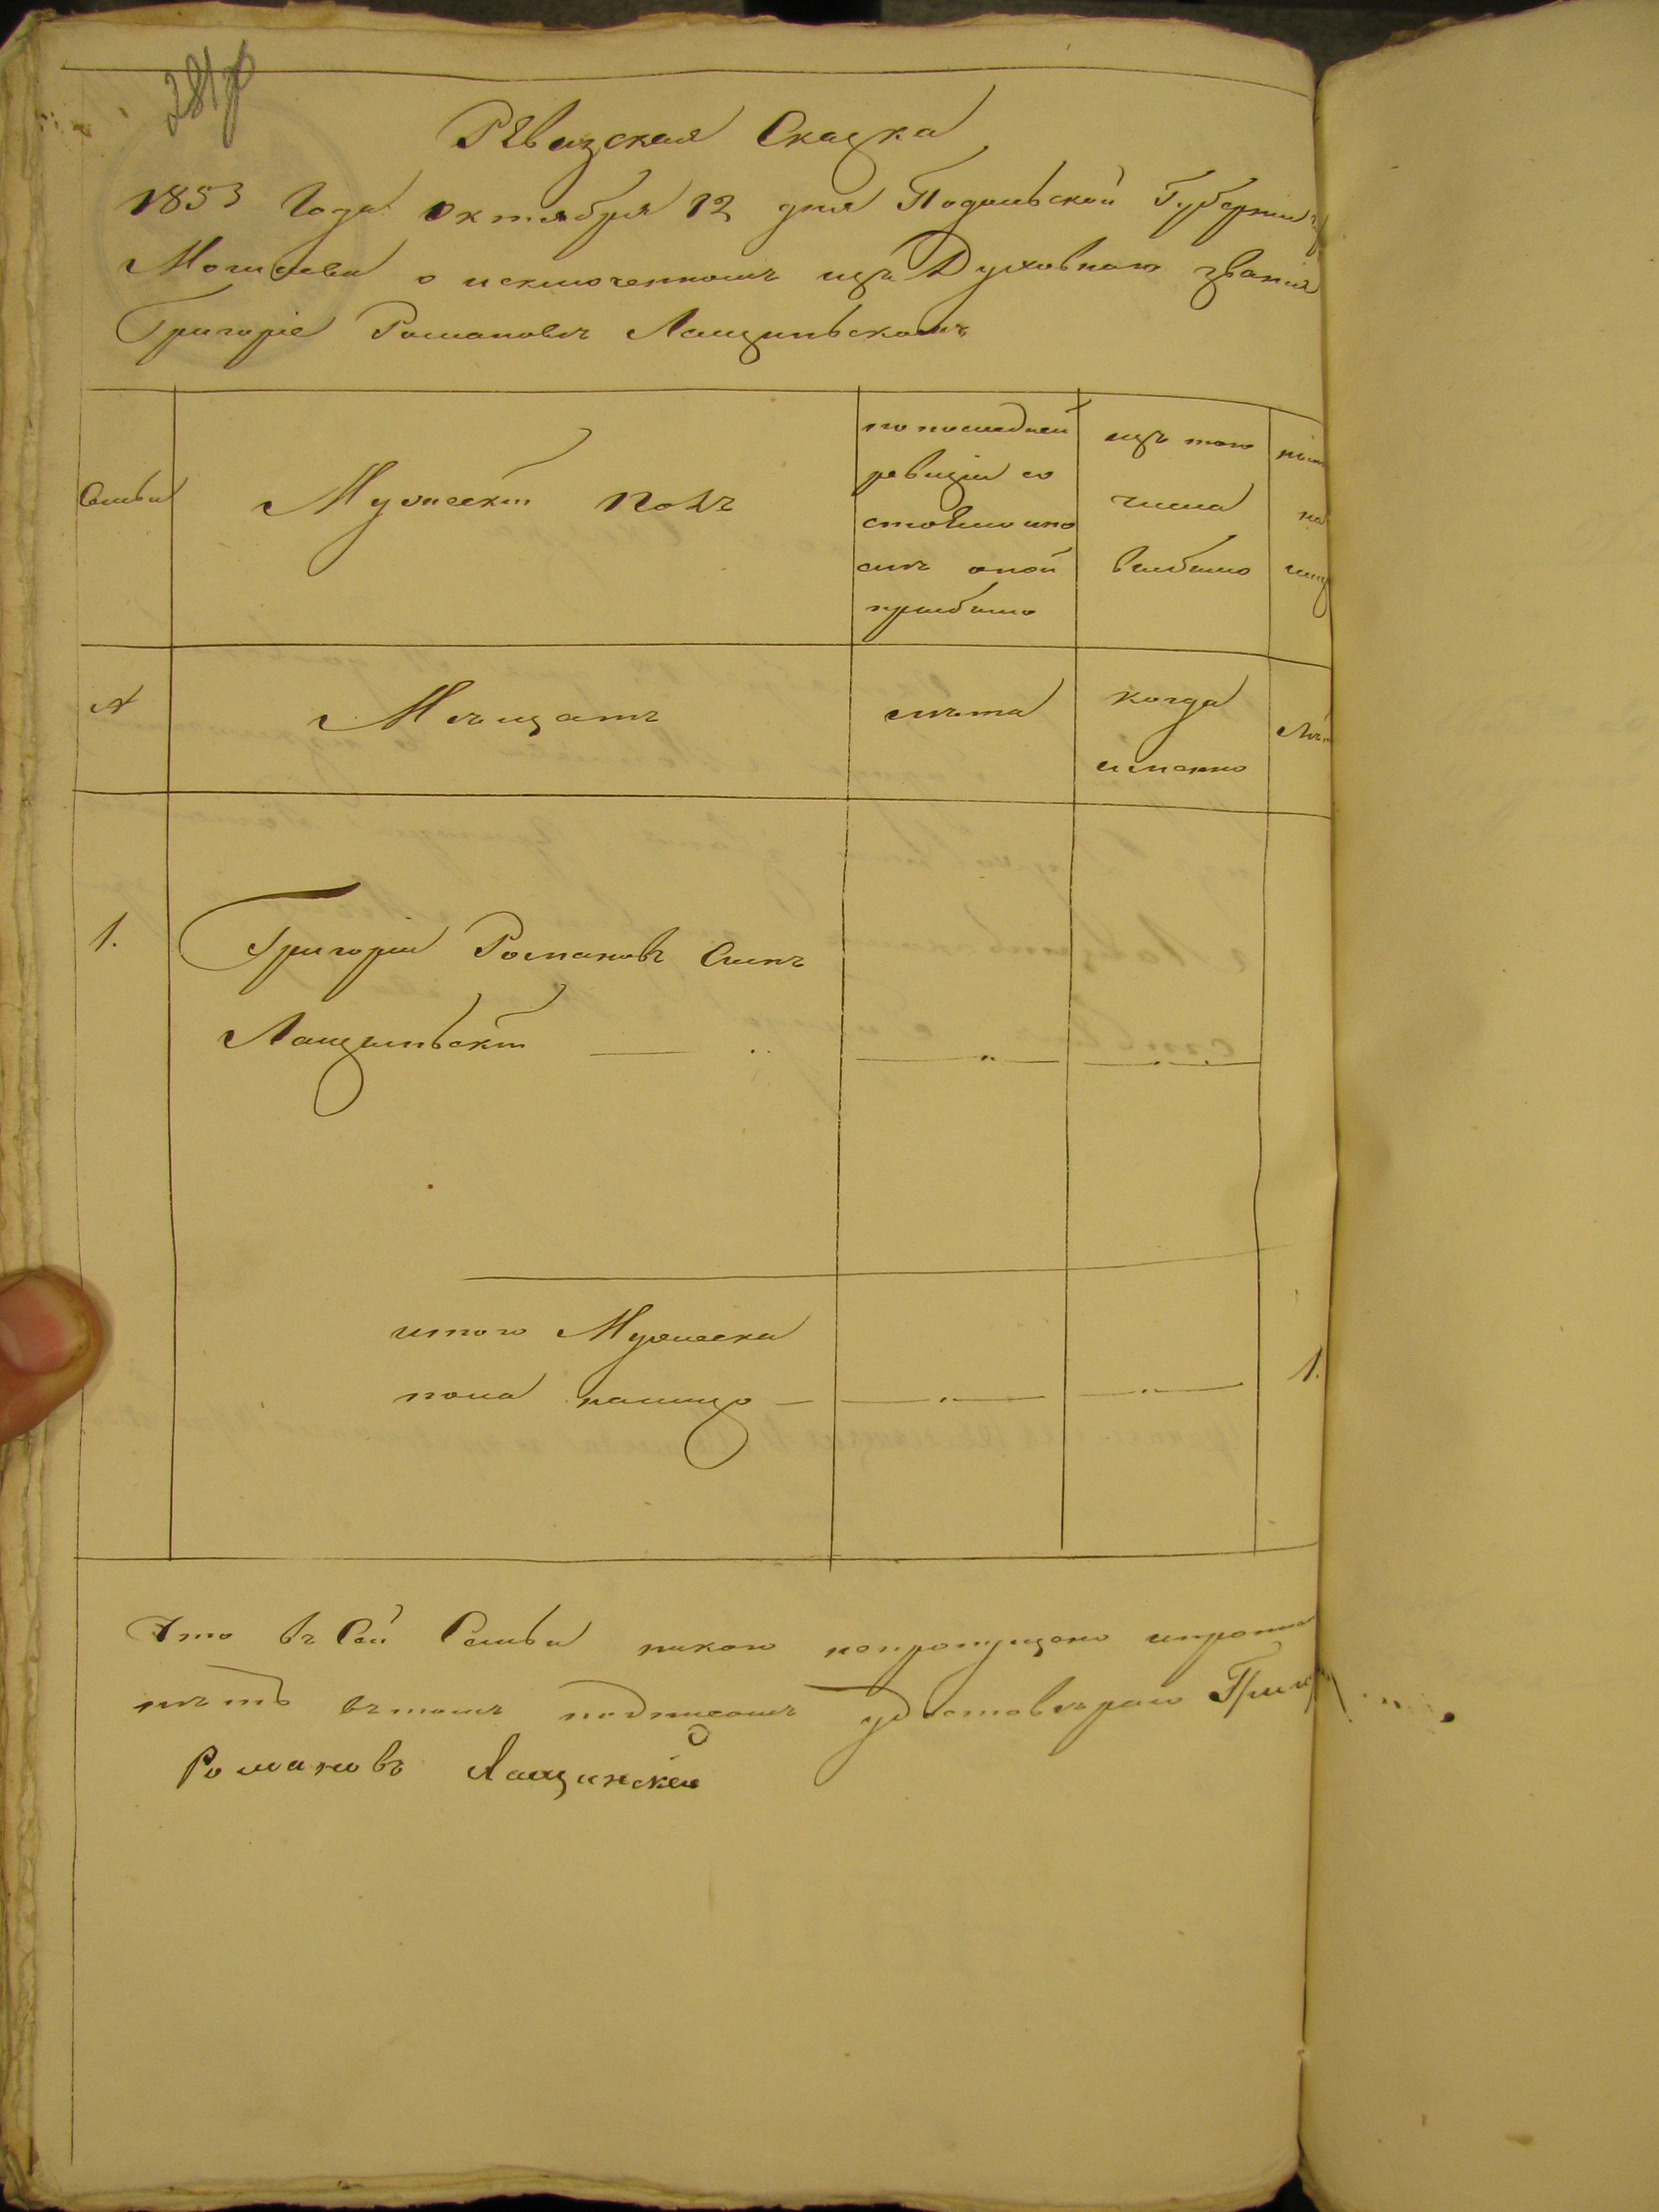 Ревизская Сказка
1853 Года Октября 12 дня Подольской Губерніи
Могилева о исключенномъ изъ Духовнаго званія
Григоріе Романовъ Лащиньскомъ
Семьи
Мужескій полъ
по последней
ревизіи со
стояло ипо
слъ оной
прибыло
изъ того
числа
выбыло
на
лиц
Мъщанъ
лъта
когда
именно
Лът
1.
Григорій Романовъ Сынъ
Лащиньскій
итого Мужеска
пола налицо
1.
Что въ Сей Семьи никого непропущено
нътъ въ томъ подписомъ удостовъряю
Романовъ Лащинскій